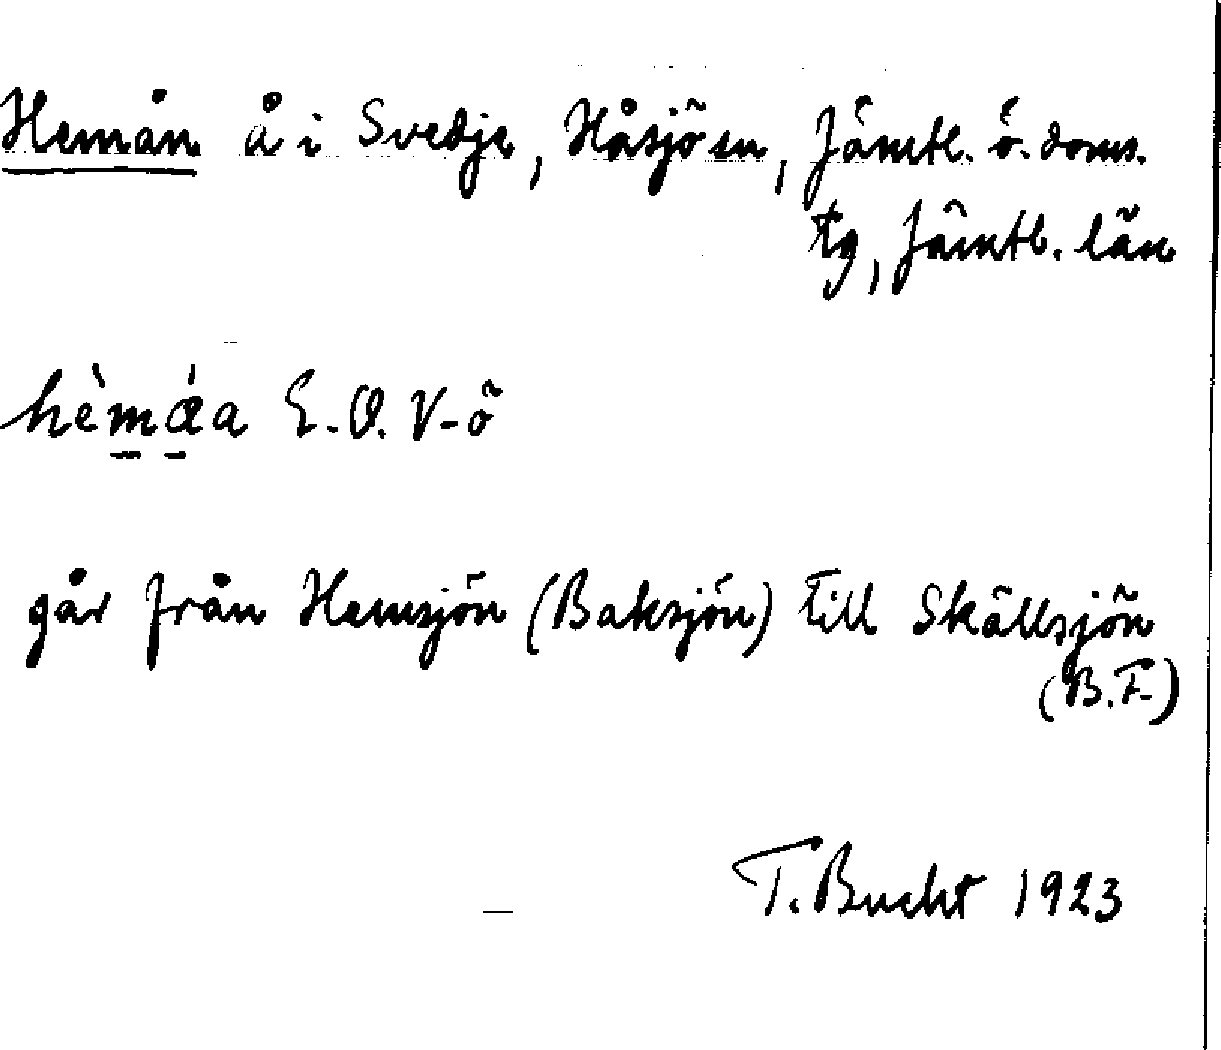 Hemån å i Svedje, Håsjö sn, Jämtl. ö. doms.
tg, Jämtl. län
hèmǽa E. O. V-ö
går från Hemsjön (Baksjön) till Skällsjön
(B.F.)
T. Bucht 1923